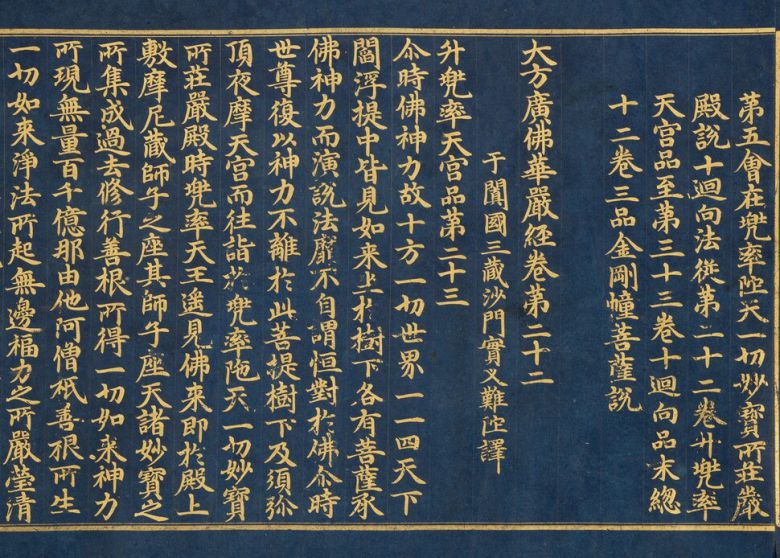 第五會在兜率陁天一切妙寶所莊嚴
殿說十迴向法從第二十二卷升兜率
天宮品至第三十三卷十迴向品末緫
十二卷三品金剛幢菩薩說
大方廣佛華嚴經卷第二十二
于闐國三藏沙門實叉難陁譯
升兜率天宮品第二十三
尒時佛神力故十方一切世界一一四天下
閻浮提中皆見如来坐於樹下各有菩薩承
佛神力而演說法靡不自謂恒對於佛尒時
世尊復以神力不離於此菩提樹下及須弥
頂夜摩天宮而往詣於兜率陁天一切妙寶
所莊嚴殿時兜率天王遙見佛来即於殿上
敷摩尼藏師子之座其師子座天諸妙寶之
所集成過去修行善根所得一切如来神力
所現無量百千億那由他阿僧祇善根所生
一切如来淨法所起無邊福力之所嚴瑩清